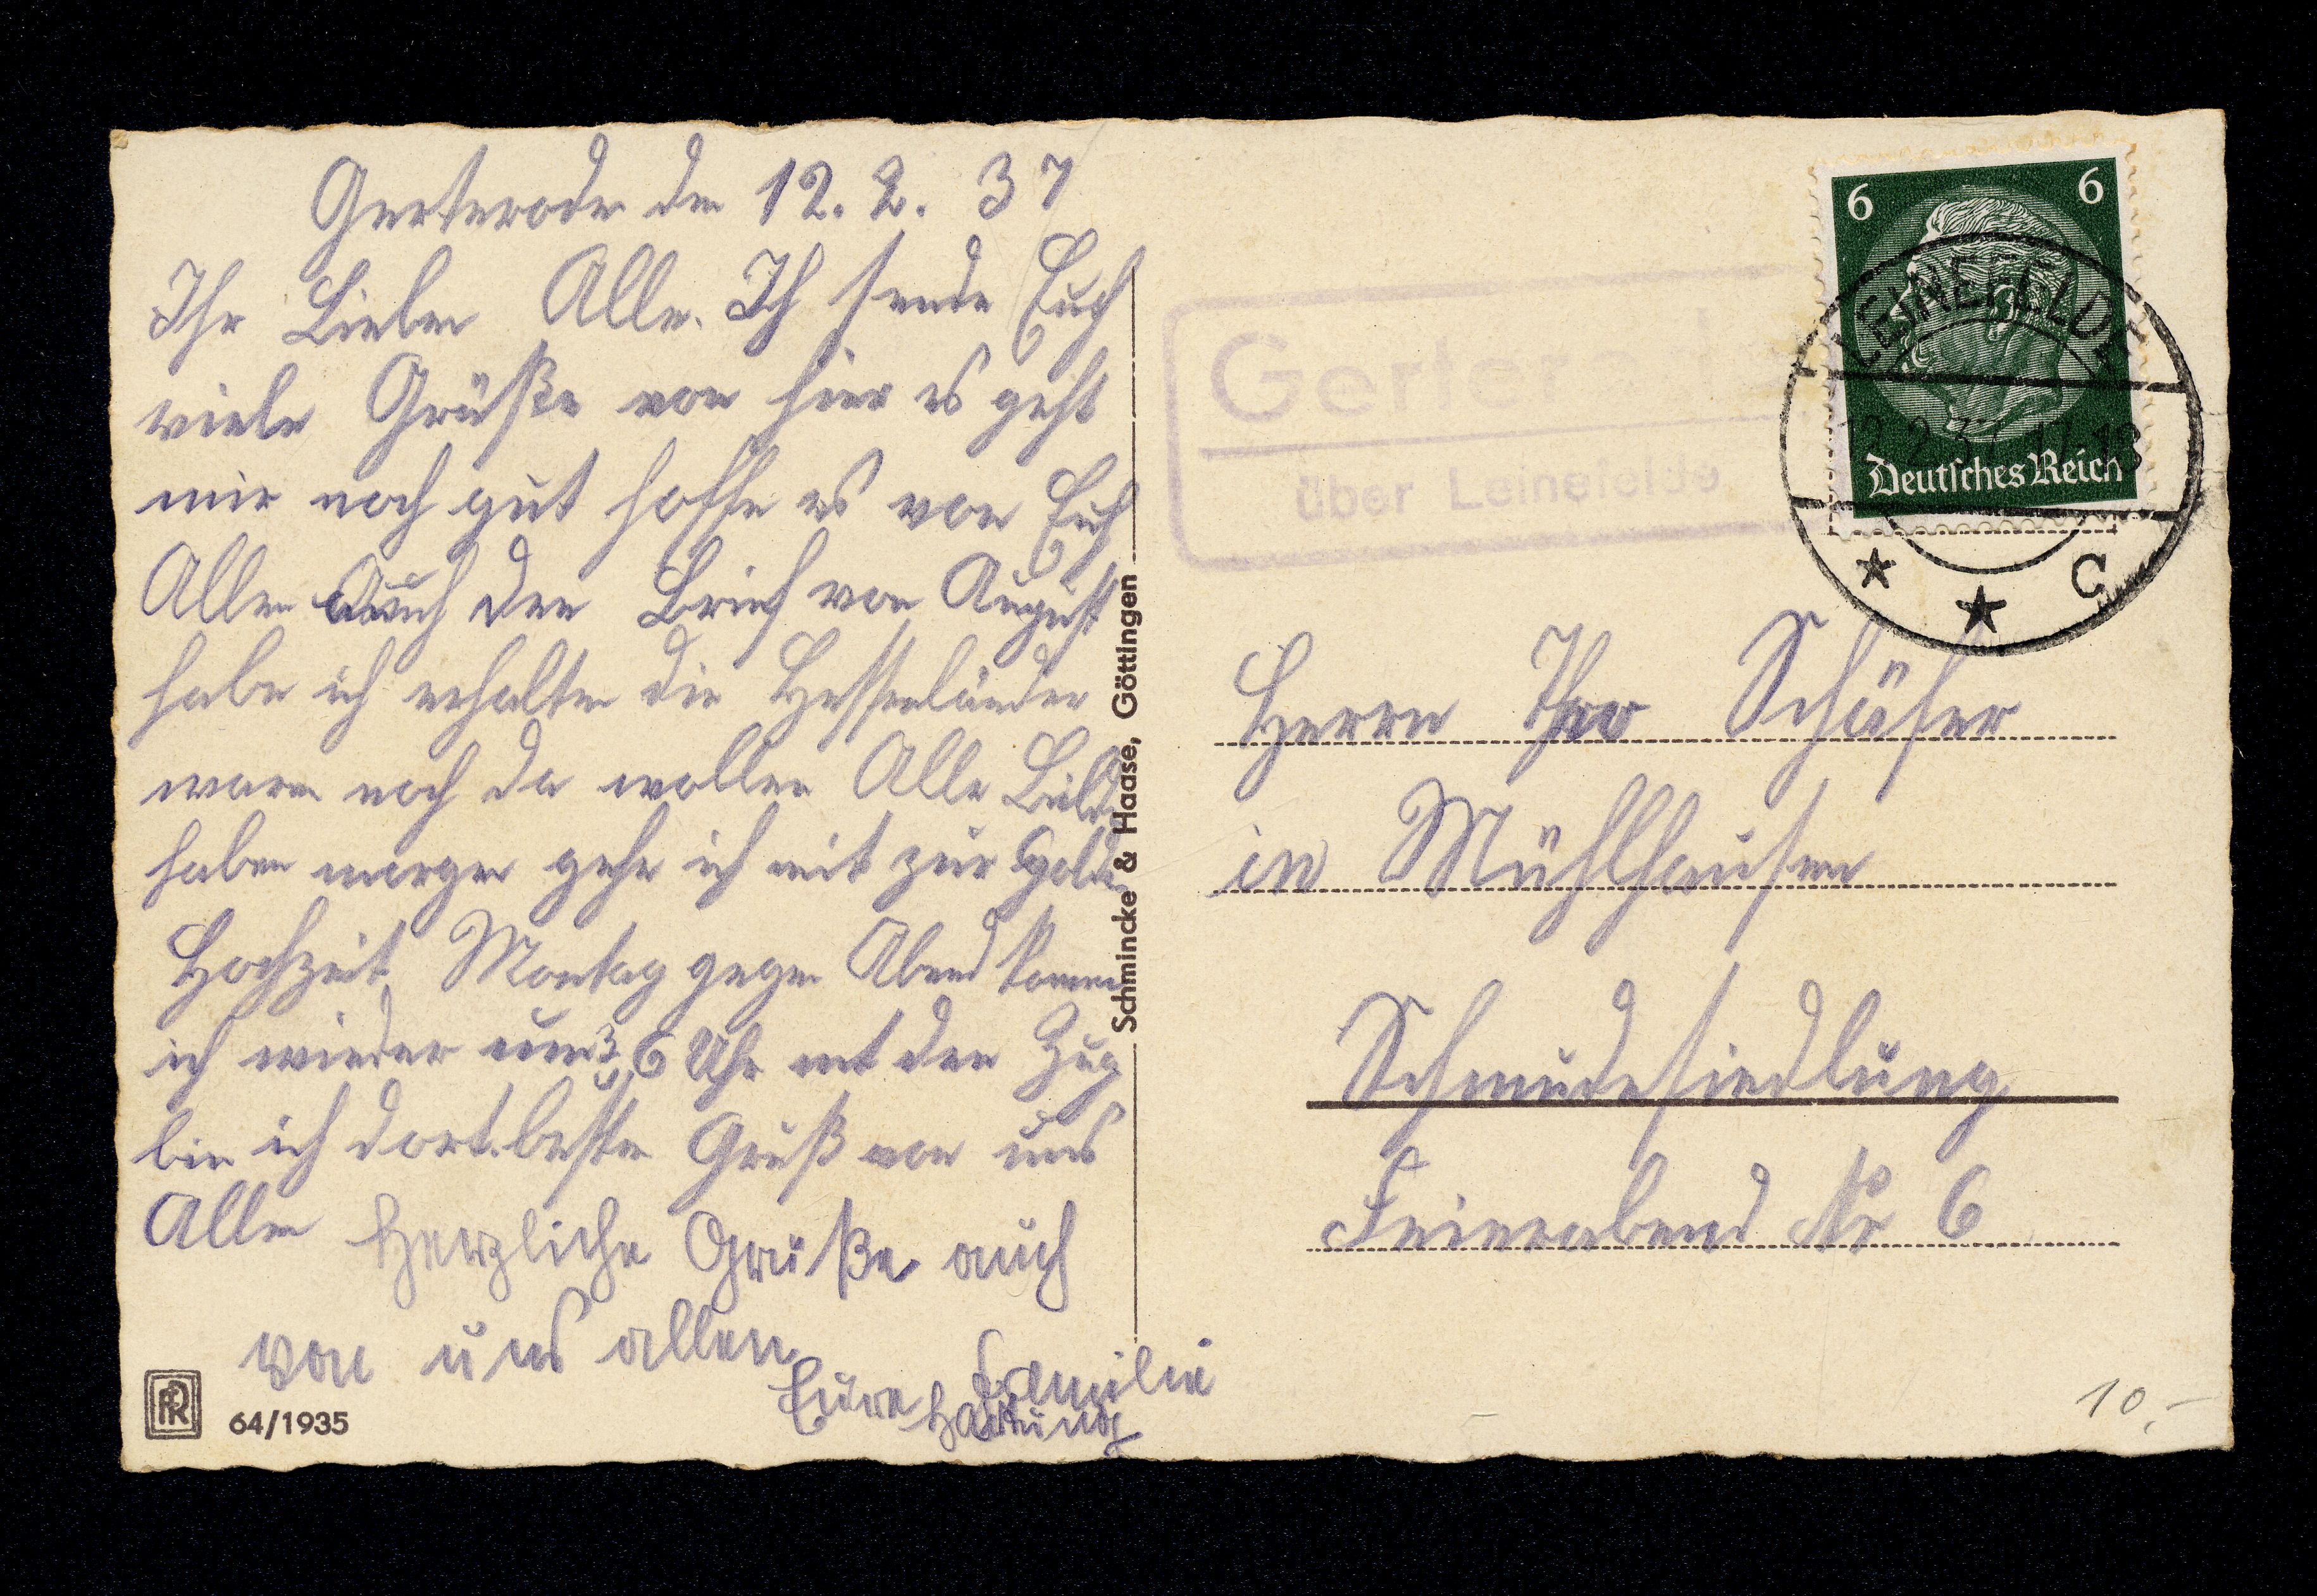 Gerterode den 12. 2. 37
Ihr Lieben Alle. Ich sende Euch
viele Grüße von hier es geht
mir noch gut hoffe es von Euch
Allen Auch den Brief von August
habe ich erhalten die Hessenländer
waren noch da wollen Alle Bilder
haben morgen gehe ich mit zur Golden
Hochzeit Montag gegen Abend komme
ich wieder um 6 Uhr mit den Zug
bin ich dort. beste Gruß von uns
Allen Herzliche Grüße auch
von uns allen
Eure Familie
Hartung
64/1935
Schmincke & Haase, Göttingen
Gerterode
über Leinefelde
6 6
Deutsches Reich
LEINEFELDE
12.2.37.17-18
C
Herrn Schäfer
in Mühlhausen
Schmudesiedlung
Feierabend Nr 6
10,-